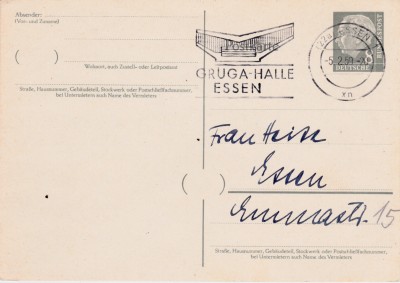 Absender:
(Vor- und Zuname)
Wohnort, auch Zustell- oder Leitpostamt
Straße, Hausnummer, Gebäudeteil, Stockwerk oder Postschließfachnummer,
bei Untermietern auch Name des Vermieters
Postkarte
GRUGA-HALLE
ESSEN
ESSEN
-5.2.59
DEUTSCHE
BUNDESPOST
Frau Heise
Essen
Emmastr. 15
Straße, Hausnummer, Gebäudeteil, Stockwerk oder Postschließfachnummer,
bei Untermietern auch Name des Vermieters